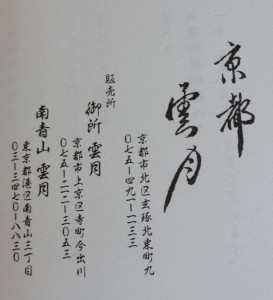 京都
雲月
京都市北区玄琢北東町九
〇七五-四九一-一三三
販売所
御所 雲月
京都市上京区寺町今出川
〇七五-二二二-三〇五三
南青山 雲月
東京都港区南青山三丁目
〇三-三四七〇-八八三〇